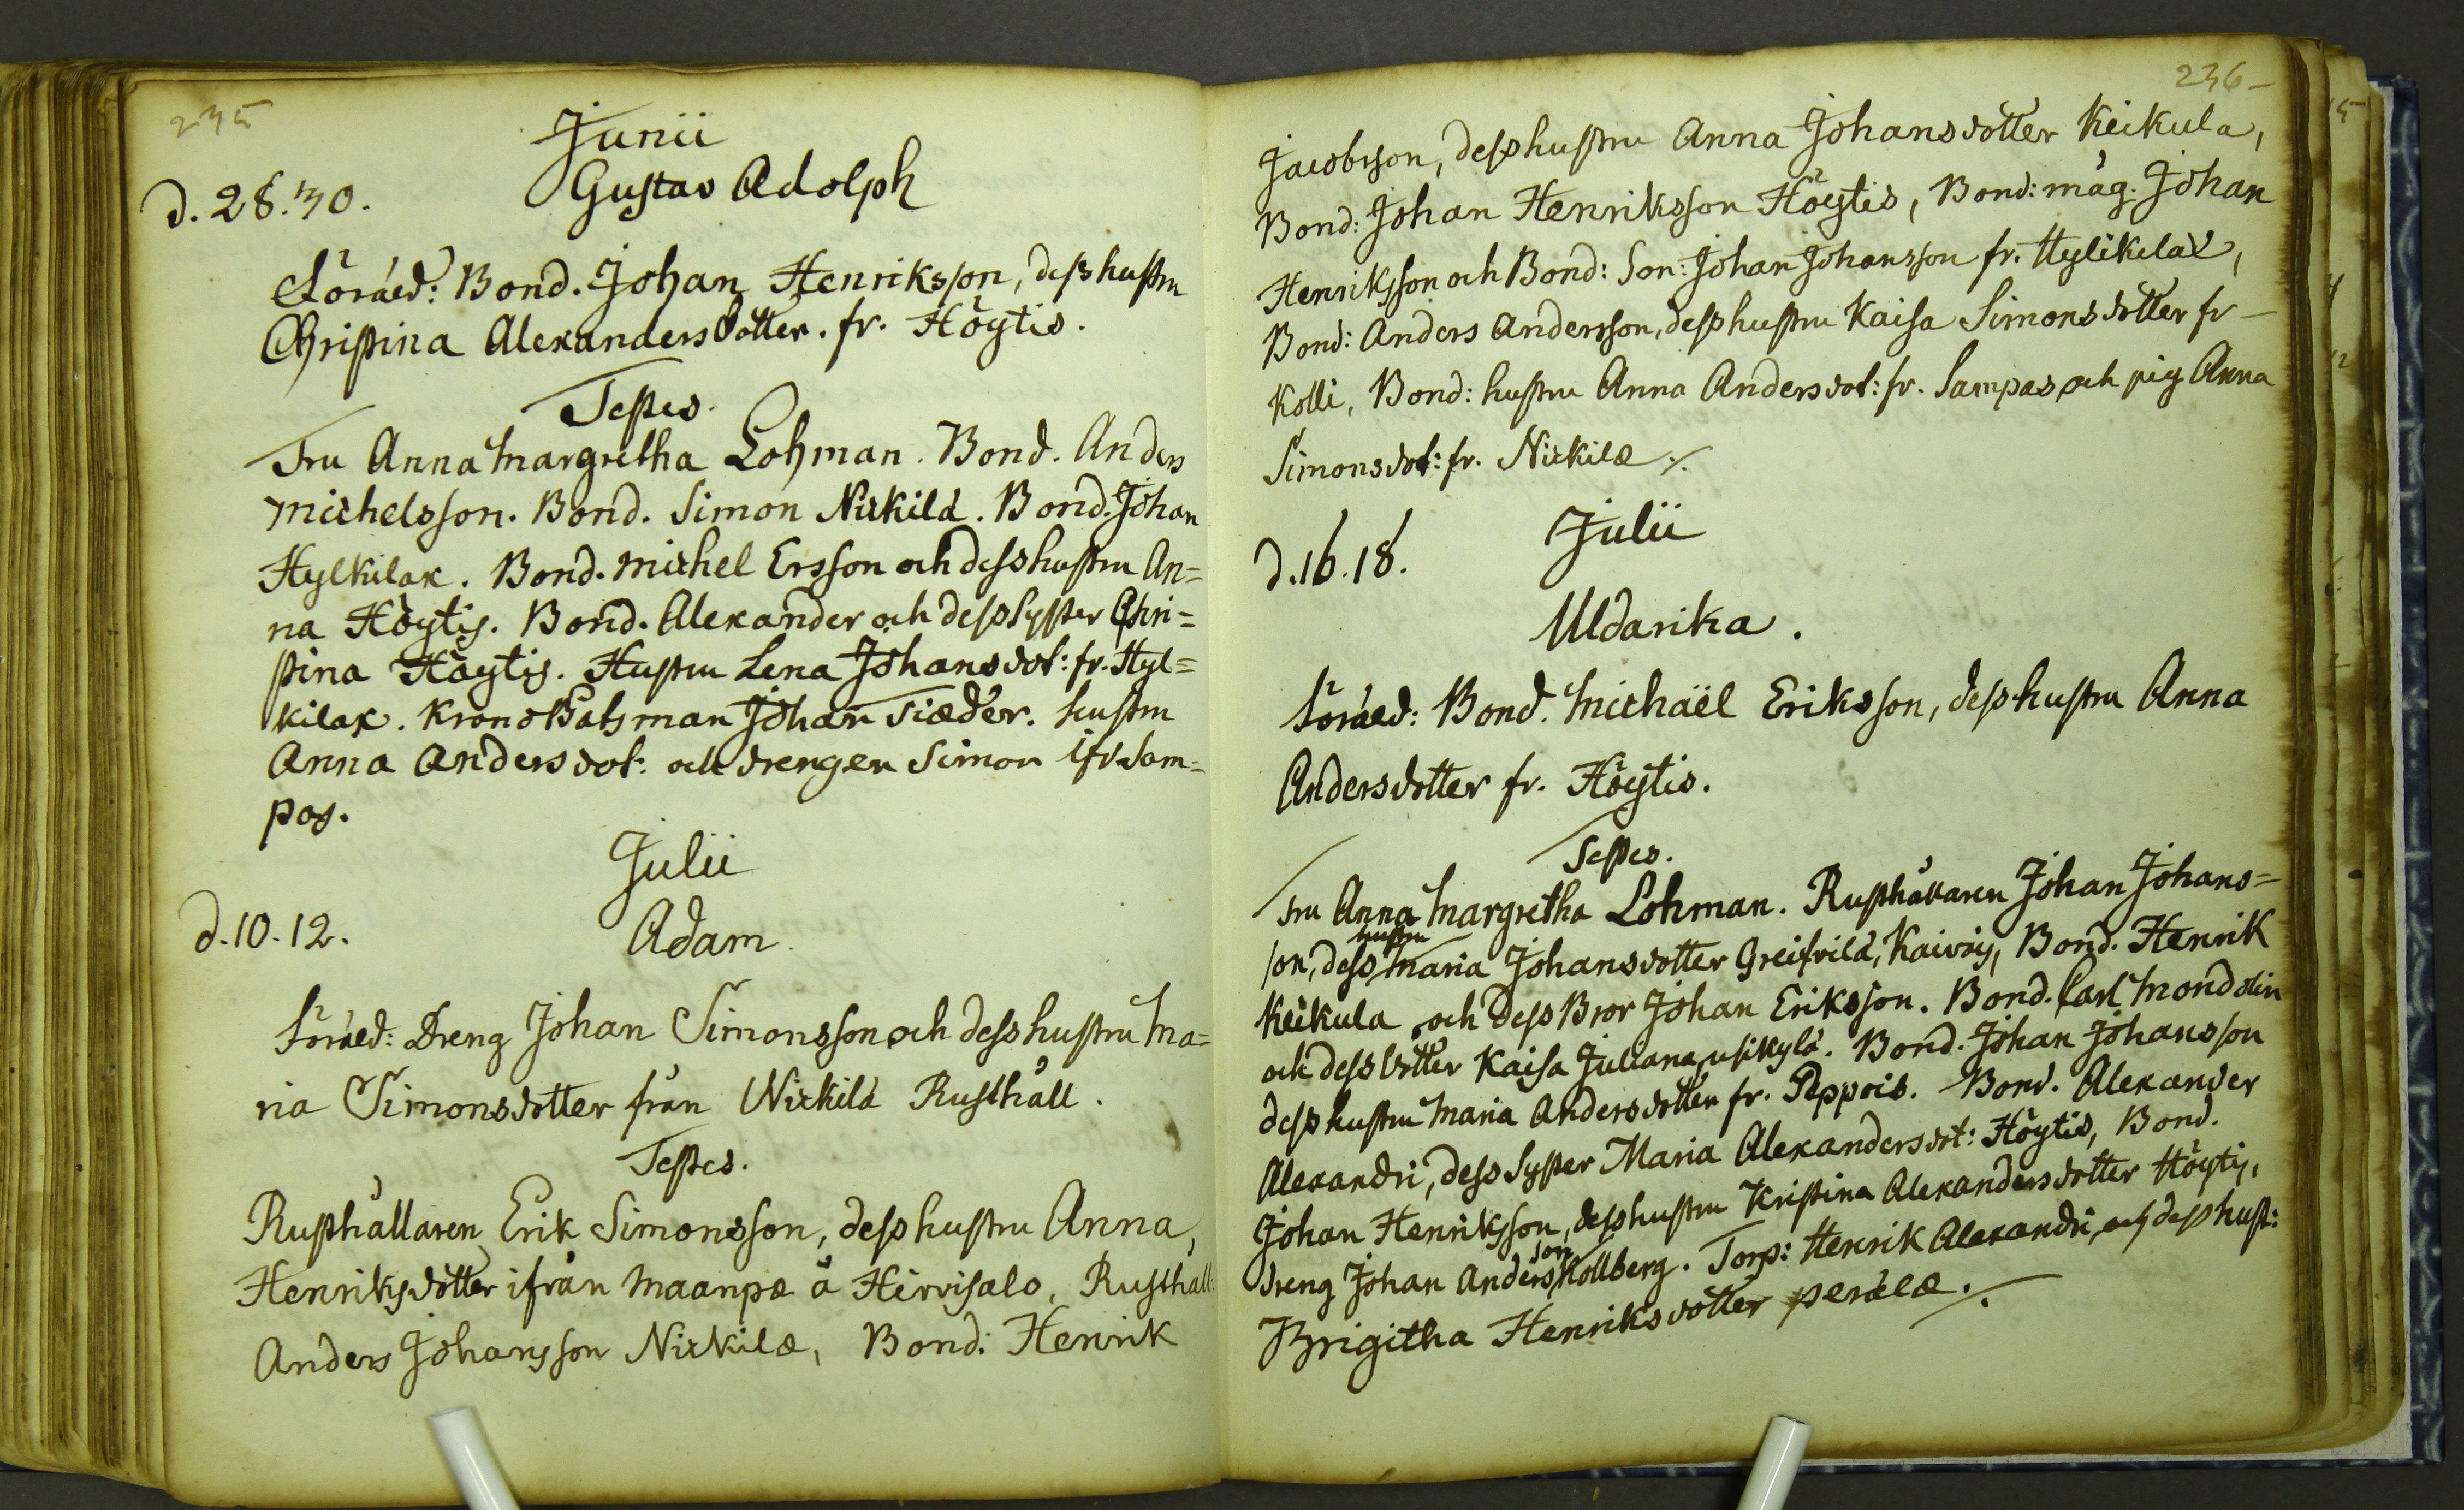 235
Junii
d. 28. 30. Gustav Adolph
Föräld: Bond. Johan Henriksson, dess hustru
Christina Alexandersdotter. fr. Höytis.
Testes.
Fru Anna Margretha Lohman. Bond. Anders
Michelsson. Bond. Simon Nickilä. Bond. Johan
Hylkilax. Bond. Michel Ersson och dess hustru An=
na Höytis. Bond. Alexander och dess Syster Chri=
stina Höytis. Hustru Lena Johansdot: fr. Hyl=
kilax. Krono Båtsman Johan Siæder. hustru
Anna Andersdot: och drengen Simon ifr. Sam=
pas.
Julii
d. 10. 12. Adam.
Föräld: Dreng Johan Simonsson och dess hustru Ma=
ria Simonsdotter från Nickilä Rusthåll.
Testes.
Rusthållaren Erik Simonsson, dess hustru Anna,
Henriksdotter ifrån Maanpæ å Hirvisalo, Rusthåll:
Anders Johansson Nickilæ, Bond: Henrik
236
Jacobsson, dess hustru Anna Johansdotter Keikula,
Bond: Johan Henriksson Höytis, Bond: måg. Johan
Henriksson och Bond: Son: Johan Johansson fr. Hylikelax,
Bond: Anders Andersson, dess hustru Kaisa Simonsdotter fr
Kolli, Bond: hustru Anna Andersdot: fr. Sampas, och pig Anna
Simonsdot: fr. Nickilæ ./.
Julii
d. 16. 18.
Uldarika.
Föräld: Bond. Michaël Eriksson, dess hustru Anna
Andersdotter fr. Höytis.
Testes.
Fru Anna Margretha Lohman. Rusthållaren Johan Johans=
son, dess hustru Maria Johansdotter Greifvilä, Kaivois, Bond. Henrik
Keikula och dess Bror Johan Eriksson. Bond. Carl Mondolin
och dess dotter Kaisa Juliana usikylä. Bond. Johan Johansson
dess hustru Maria Andersdotter fr. Peppois. Bond. Alexander
Alexandri, dess Syster Maria Alexandersdot: Höytis, Bond.
Johan Henriksson, dess hustru Kristina Alexandersdotter Höytis,
Dreng Johan Andersson Kollberg. Torp: Henrik Alexandri, och dess hust:
Brigitha Henriksdotter perälæ ./.